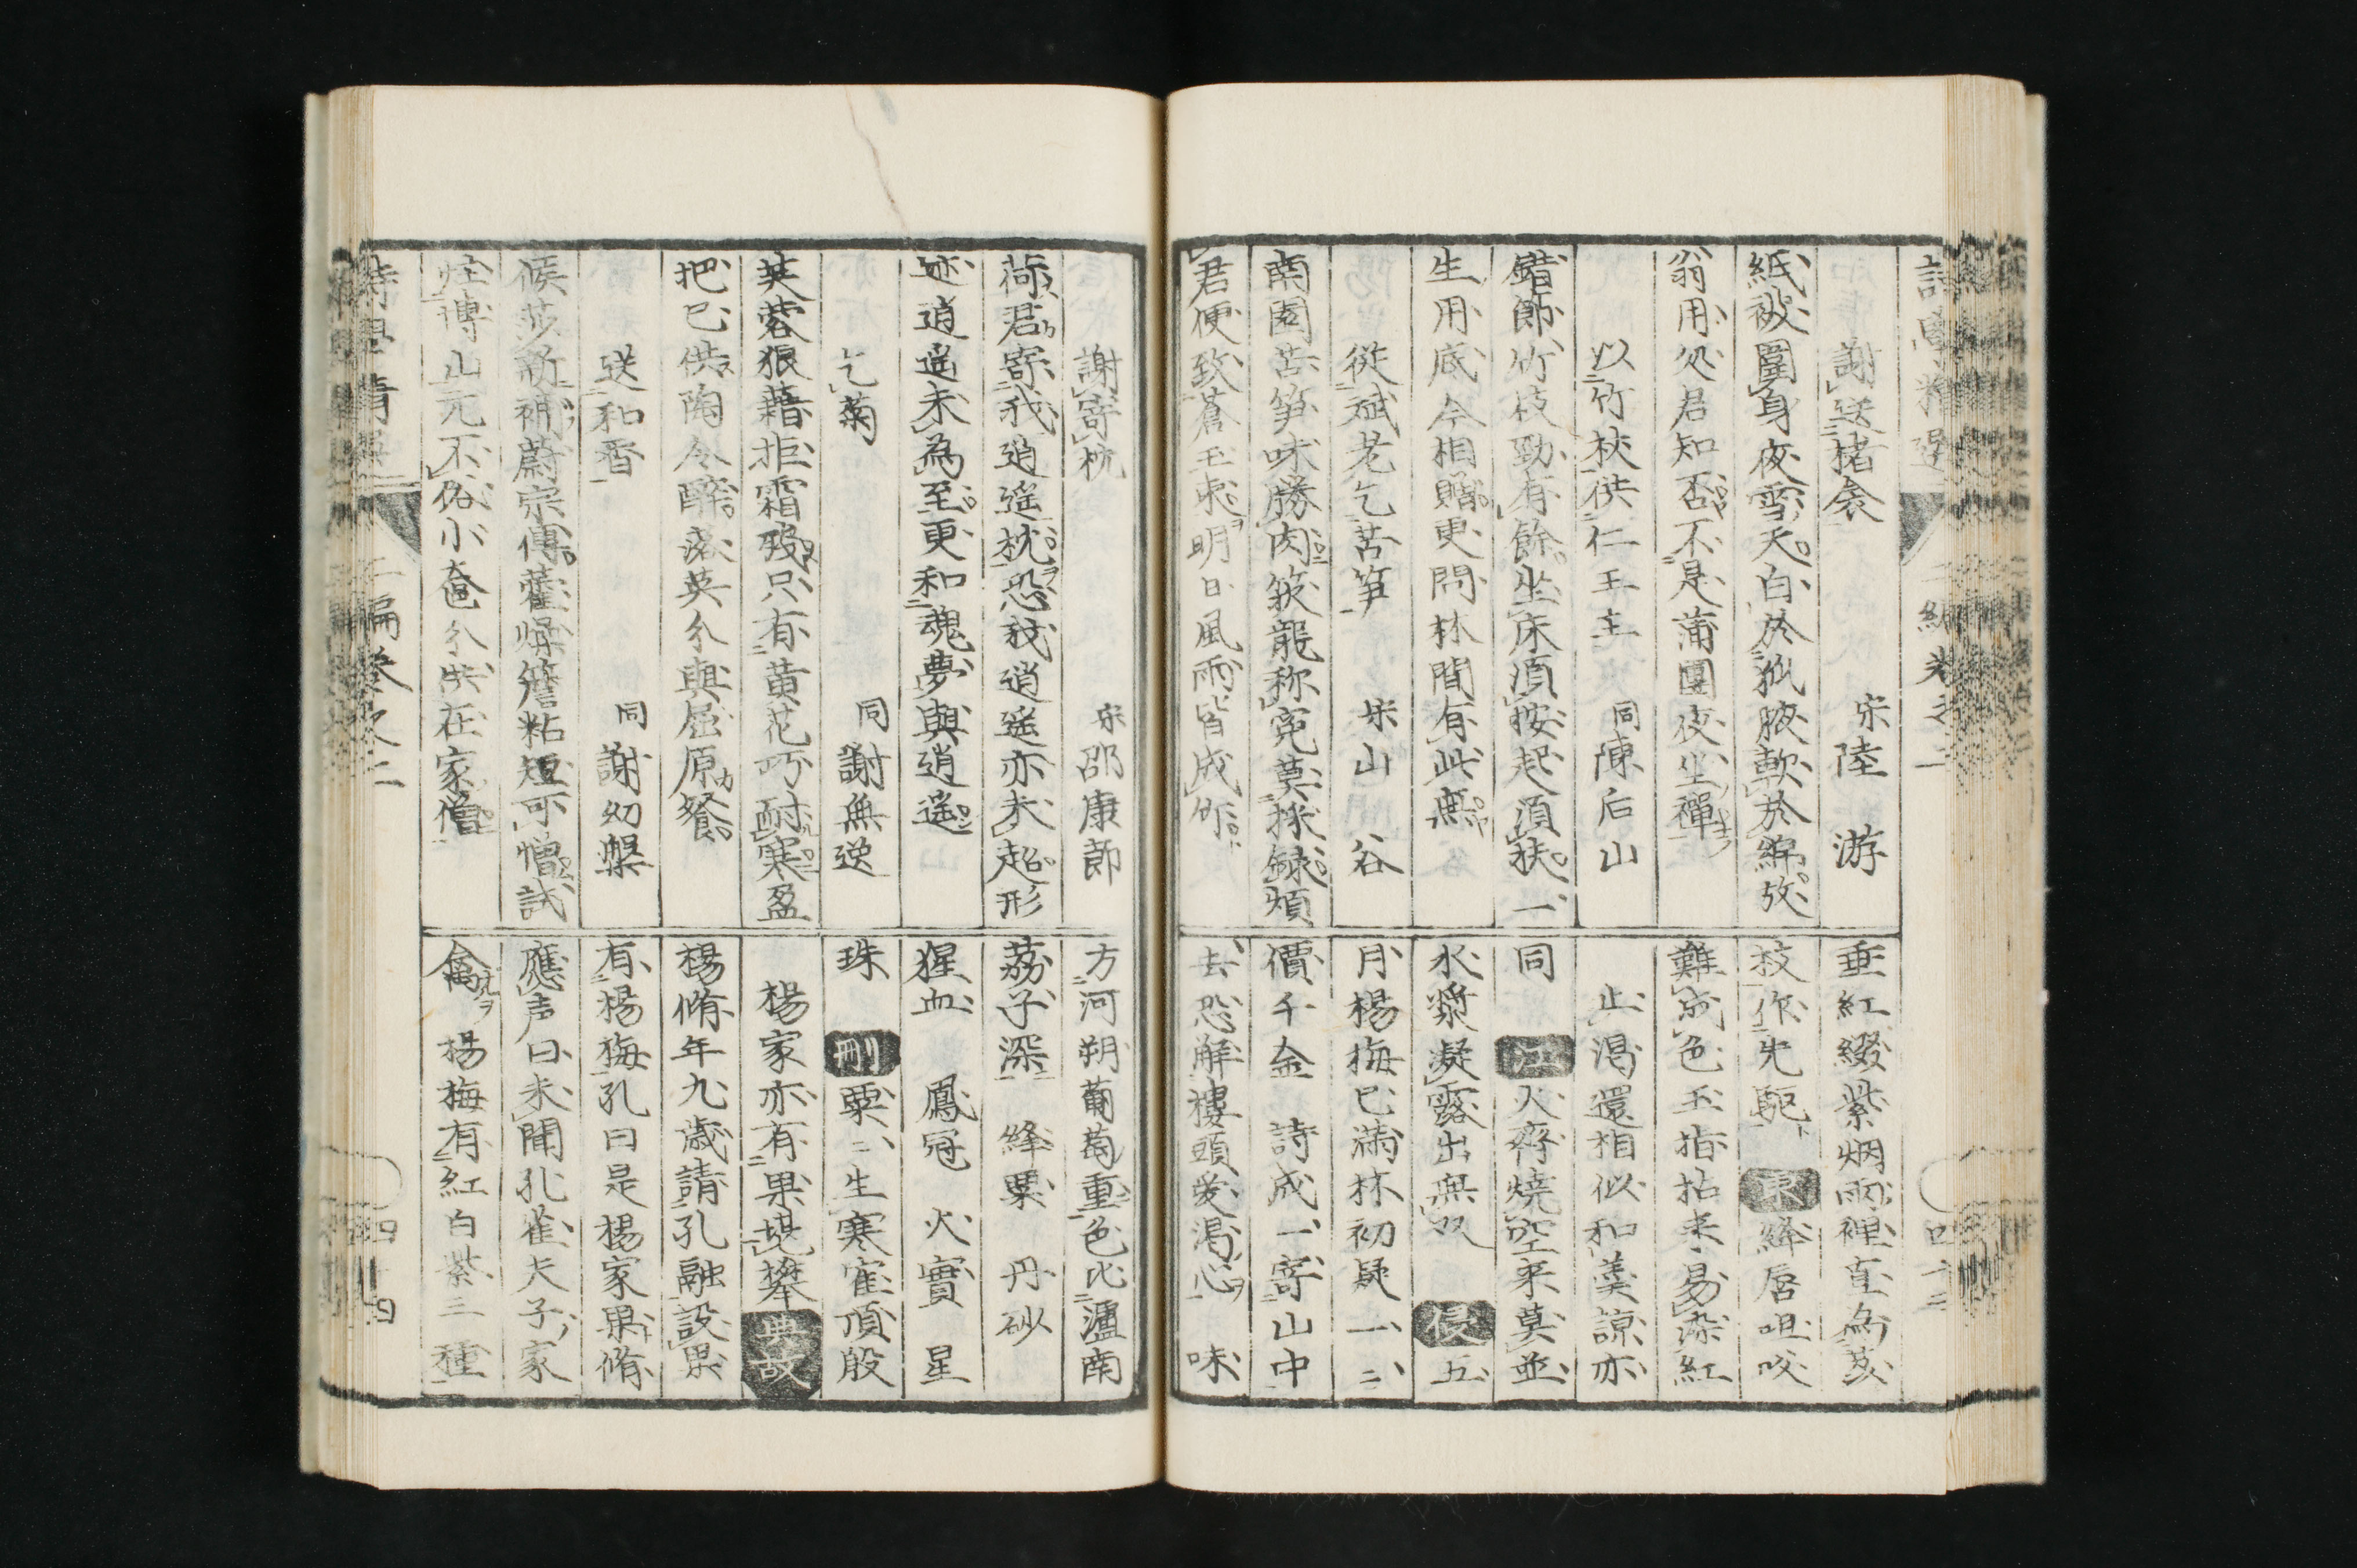 謝送楮衾　宋陸　游
紙被圍身夜雪天白於狐腋軟於綿放
翁用処君知否不是蒲團夜坐禪
以竹枚供仁王主　同陳后山
錯節竹枝勁有餘坐床須按起須扶一
生用底今相贈更問林間有此無
從斌老乞苦笋　宋山　谷
南園苦笋味勝肉籜龍称冤莫採録煩
君便致蒼玉束明日風雨皆成竹
垂紅綴紫烟雨裡直為荔
枝作先駆　東　絳唇咀咬
難成色玉指拈来易染紅
止渇還相似和羹諒亦
同　江　火齊燒空来莫並
水漿凝露出無双　侵　五
月楊梅已満林初疑一二
價千金　詩成一寄山中
去恐觧樓頭愛渇心　味
謝寄枕　宋邵康節
荷君寄我逍遥枕恐我逍遥亦未超形
迹逍遥未為至更和魂夢與逍遥
乞菊　同謝無逆
芙蓉狼藉拒霜殘只有黄花巧耐寒盈
把已供陶令醉落英分與屈原餐
送和香　同謝幼槃
候莎新補蔚宗傳藿燥詹粘短可憎試
炷博山元不俗小奩分供在家僧
方河朔葡萄重色比瀘南
荔子深　絳粟　丹砂
猩血　鳳冠　火實　星
珠　刪　粟二生寒寉頂殷
楊家亦有果堪攀　典故
楊脩年九歳請孔融設果
有楊梅孔曰是楊家果脩
應声曰未聞孔雀夫子家
禽　楊梅有紅白紫三種
二編巻之二
四十四